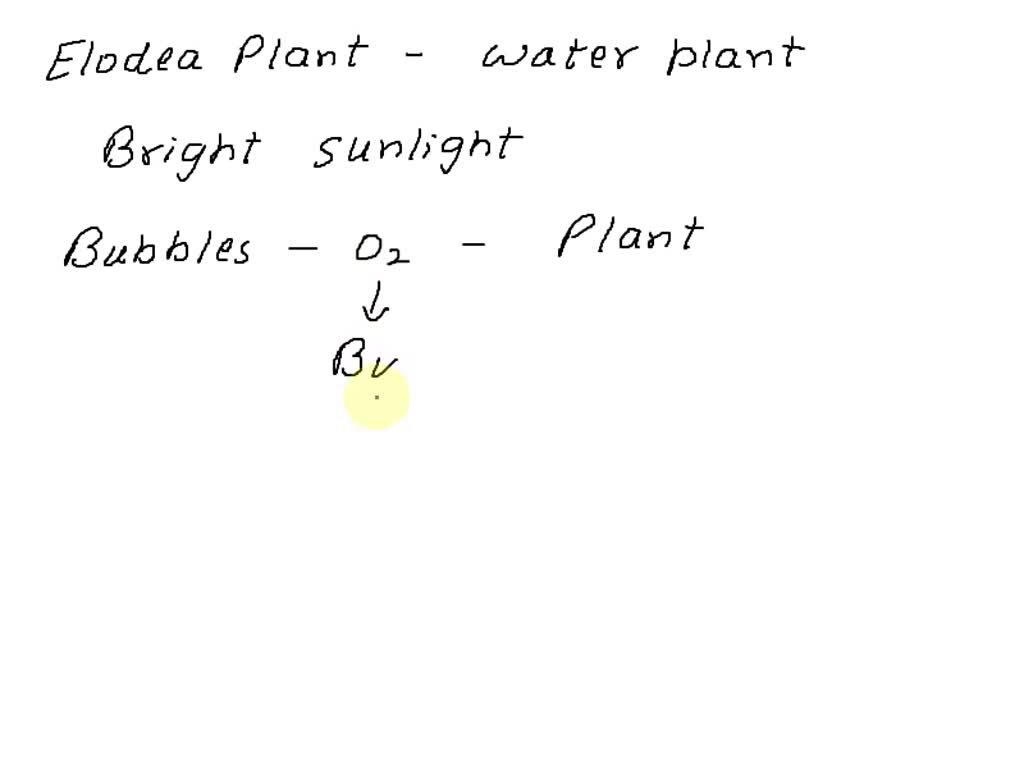 Elodea Plant - water plant
Bright sunlight
Bubbles - O₂ - Plant
↓
Bu